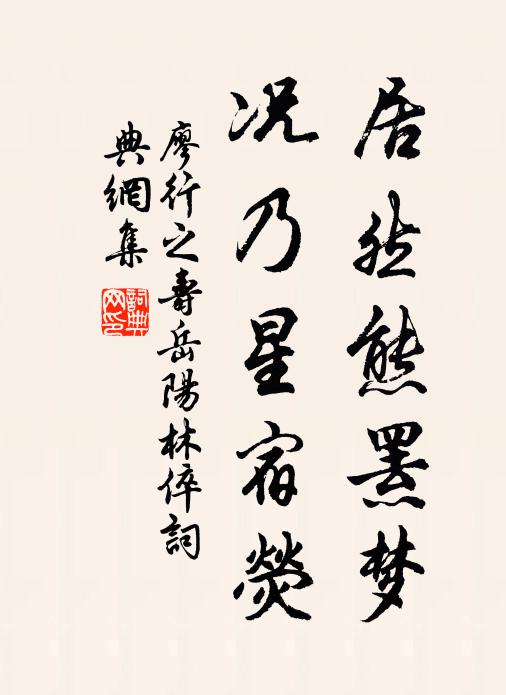 居然熊罴梦
况乃星宿荧
廖行之寿岳陽林倅詞
典網集
詞典网印